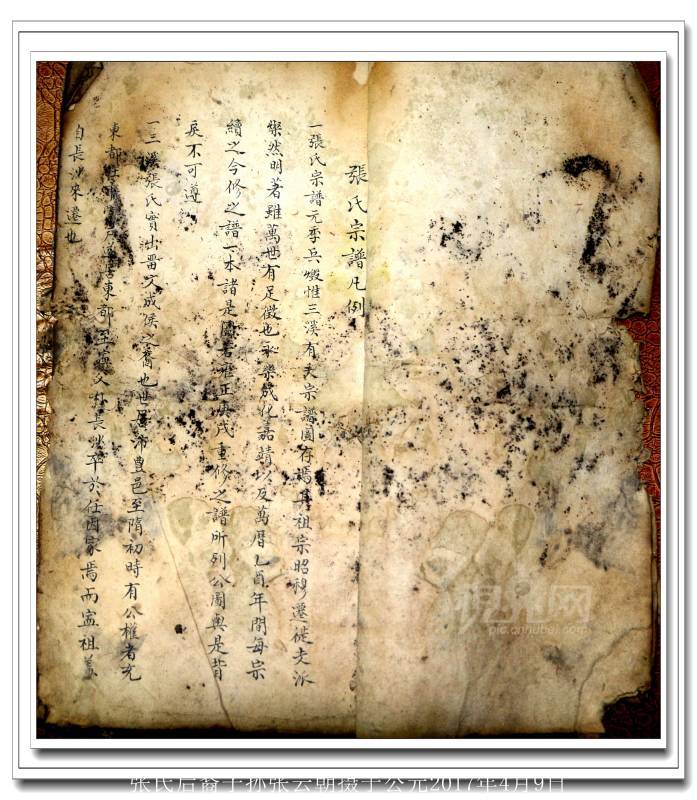 張氏宗譜凡例
一張氏宗譜元季兵燬惟三溪有夫宗譜圖存焉其祖宗昭穆遷徙支派
粲然明著雖萬世有足徵也永樂成化嘉靖以及萬曆乙酉年間每宗
續之今修之譜一本諸是圖若雍正庚戌重修之譜所列公圖與是背
戾不可遵
一三溪張氏實出晉文成侯之裔也世居沛豐邑至隋初時有公權者允
東都 東部 長沙卒於任因家焉而 祖蓋
自長沙來遷也
視界网
pic.cnhubei.com
张氏后裔子孙张云朝摄于公元2017年4月9日